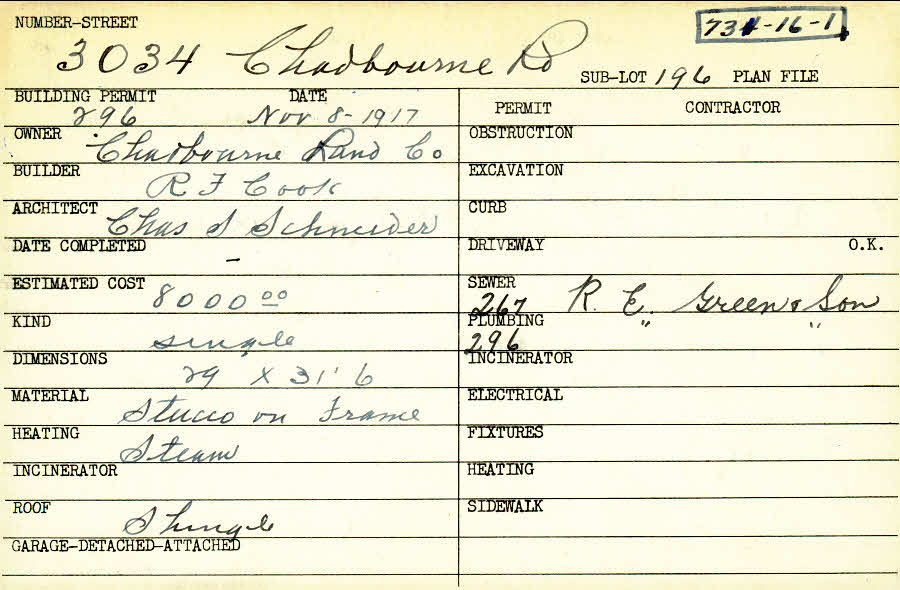 NUMBER-STREET
734-16-1
3034 Chadbourne Rd
SUB-LOT 196 PLAN FILE
BUILDING PERMIT DATE
296 Nov 8-1917
OWNER
Chadbourne Land Co
BUILDER
R F Cook
ARCHITECT
Chas S Schneider
DATE COMPLETED
-
ESTIMATED COST
8000 00
KIND
single
DIMENSIONS
29 x 31' 6
MATERIAL
Stucco on Frame
HEATING
Steam
INCINERATOR
ROOF
Shingle
GARAGE-DETACHED-ATTACHED
PERMIT CONTRACTOR
OBSTRUCTION
EXCAVATION
CURB
DRIVEWAY O.K.
SEWER
267 R. E. Green & Son
PLUMBING " "
296
INCINERATOR
ELECTRICAL
FIXTURES
HEATING
SIDEWALK